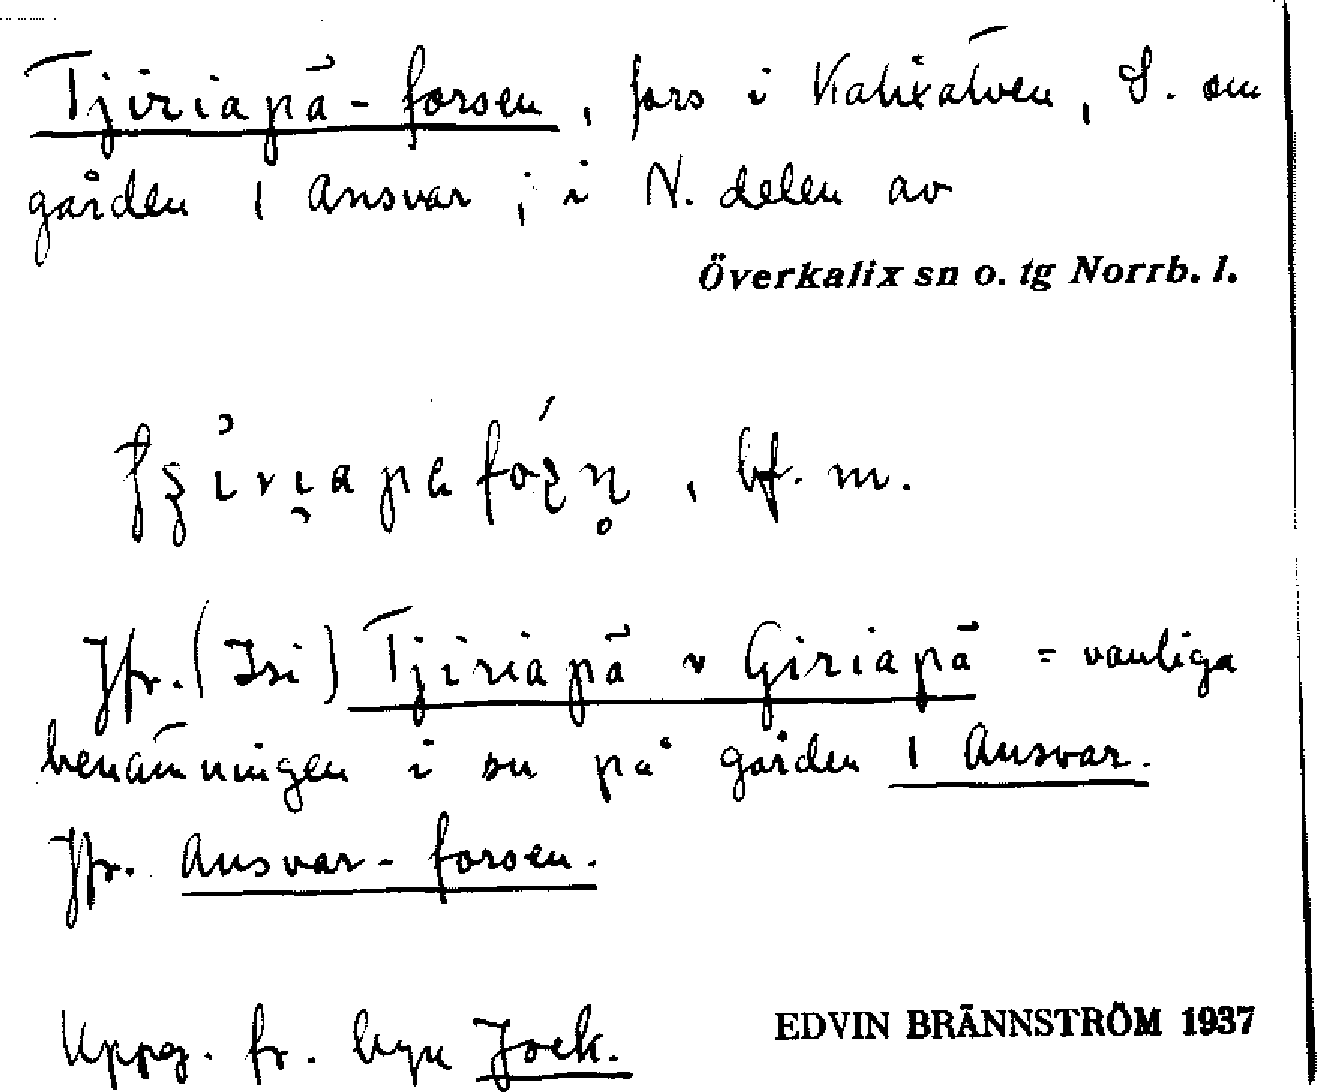 Tjiriapä-forsen, fors i Kalixälven, S. om
gården 1 Ansvar; i N. delen av
Överkalix sn o. tg Norrb. l.
, bf. m.
Jfr. (Isi) Tjiriapä v Giriapä = vanliga
benämningen i sn på gården 1 Ansvar.
Jfr. Ansvar-forsen.
Uppg. fr. byn Jock.
EDVIN BRÄNNSTRÖM 1937